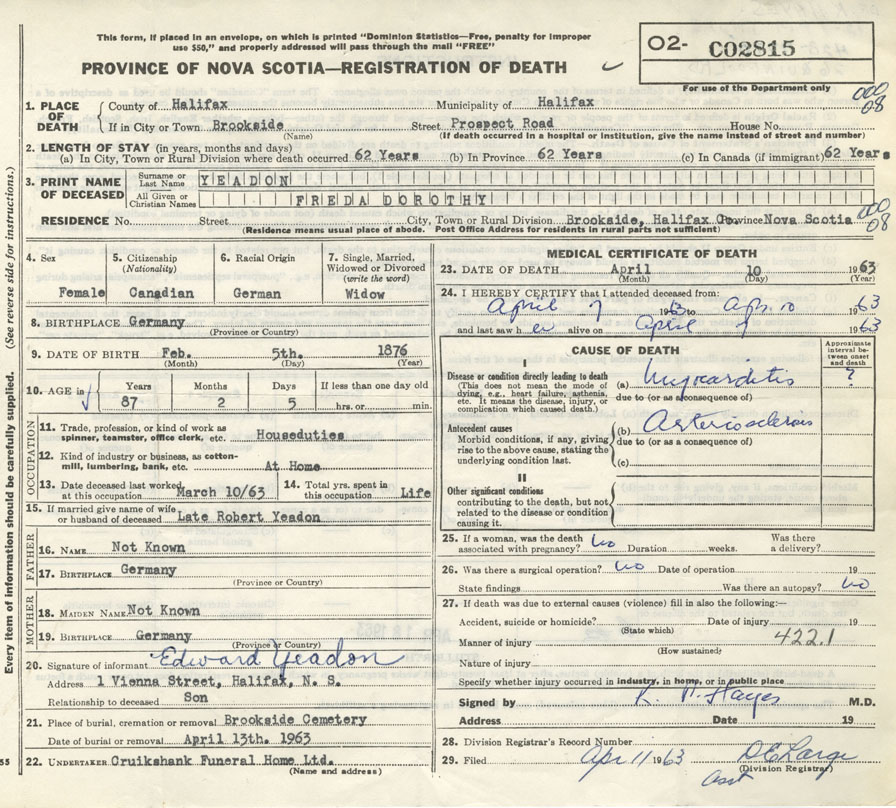 This form, if placed in an envelope, on which is printed "Dominion Statistics—Free, penalty for improper
use $50," and properly addressed will pass through the mail "FREE"
PROVINCE OF NOVA SCOTIA—REGISTRATION OF DEATH
O2- C02815
For use of the Department only
000
08
1. PLACE OF DEATH
County of Halifax Municipality of Halifax
If in City or Town Brookside Street Prospect Road House No.
(Name) (If death occurred in a hospital or institution, give the name instead of street and number)
2. LENGTH OF STAY (in years, months and days)
(a) In City, Town or Rural Division where death occurred 62 Years (b) In Province 62 Years (c) In Canada (if immigrant) 62 Years
3. PRINT NAME OF DECEASED
Surname or Last Name YEADON
All Given or Christian Names FREDA DOROTHY
RESIDENCE No. Street City, Town or Rural Division Brookside, Halifax Co. Province Nova Scotia
000
08
(Residence means usual place of abode. Post Office Address for residents in rural parts not sufficient)
(See reverse side for instructions.)
Every item of information should be carefully supplied.
55
4. Sex 5. Citizenship (Nationality) 6. Racial Origin 7. Single, Married, Widowed or Divorced (write the word)
Female Canadian German Widow
8. BIRTHPLACE Germany
(Province or Country)
9. DATE OF BIRTH Feb. 5th. 1876
(Month) (Day) (Year)
10. AGE in Years Months Days If less than one day old
87 2 5 hrs. or min.
OCCUPATION
11. Trade, profession, or kind of work as spinner, teamster, office clerk, etc. Houseduties
12. Kind of industry or business, as cotton-mill, lumbering, bank, etc. At Home
13. Date deceased last worked at this occupation March 10/63 14. Total yrs. spent in this occupation Life
15. If married give name of wife or husband of deceased Late Robert Yeadon
FATHER
16. NAME Not Known
17. BIRTHPLACE Germany
(Province or Country)
MOTHER
18. MAIDEN NAME Not Known
19. BIRTHPLACE Germany
(Province or Country)
20. Signature of informant Edward Yeadon
Address 1 Vienna Street, Halifax, N. S.
Relationship to deceased Son
21. Place of burial, cremation or removal Brookside Cemetery
Date of burial or removal April 13th. 1963
22. UNDERTAKER Cruikshank Funeral Home Ltd.
(Name and address)
MEDICAL CERTIFICATE OF DEATH
23. DATE OF DEATH April 10 1963
(Month) (Day) (Year)
24. I HEREBY CERTIFY that I attended deceased from:
April 7 1963 to Apr. 10 1963
and last saw her alive on April 9 1963
CAUSE OF DEATH
Approximate interval between onset and death
I
Disease or condition directly leading to death (a) Myocarditis ?
(This does not mean the mode of dying, e.g., heart failure, asthenia, etc. It means the disease, injury, or complication which caused death.)
due to (or as a consequence of)
Antecedent causes (b) Arteriosclerosis
Morbid conditions, if any, giving rise to the above cause, stating the underlying condition last.
due to (or as a consequence of)
(c)
II
Other significant conditions
contributing to the death, but not related to the disease or condition causing it.
25. If a woman, was the death associated with pregnancy? No Duration weeks. Was there a delivery?
26. Was there a surgical operation? No Date of operation 19
State findings Was there an autopsy? No
27. If death was due to external causes (violence) fill in also the following:—
Accident, suicide or homicide? Date of injury 19
(State which)
Manner of injury 422.1
(How sustained)
Nature of injury
Specify whether injury occurred in industry, in home, or in public place
Signed by K. M. Hayes M.D.
Address Date 19
28. Division Registrar's Record Number
29. Filed Apr 11 1963
(Division Registrar)